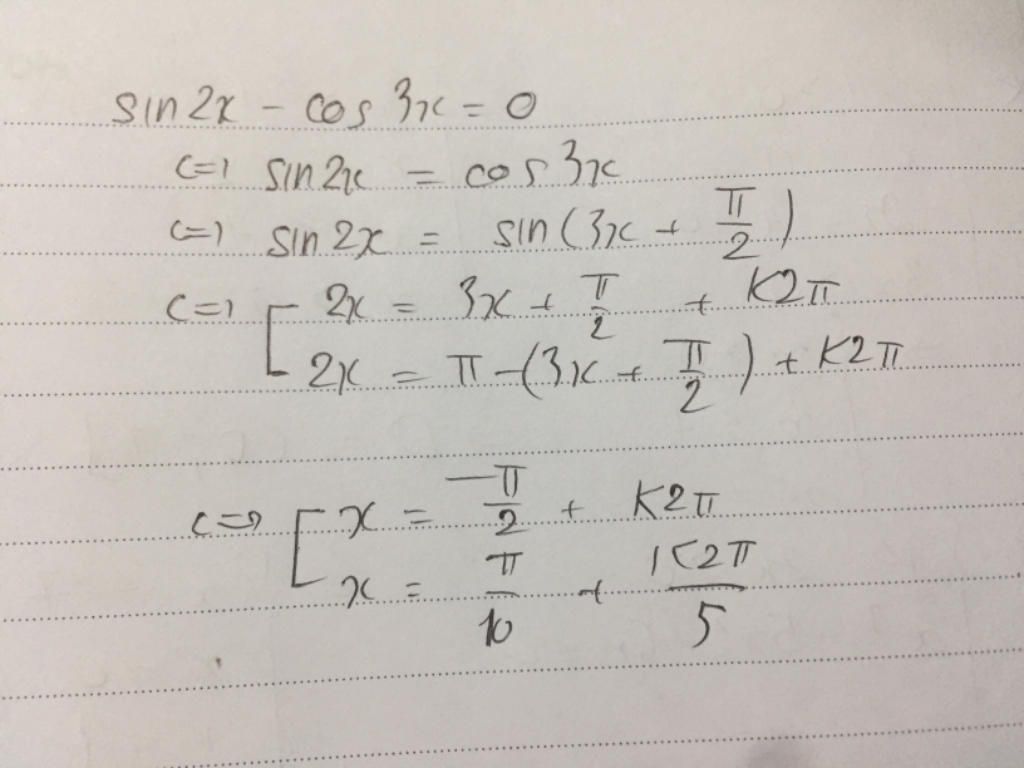 sin 2x - cos 3x = 0
<=> sin 2x = cos 3x
<=> sin 2x = sin (3x + π/2)
<=> [ 2x = 3x + π/2 + K2π
2x = π - (3x + π/2) + K2π
<=> [ x = -π/2 + K2π
x = π/10 + K2π/5